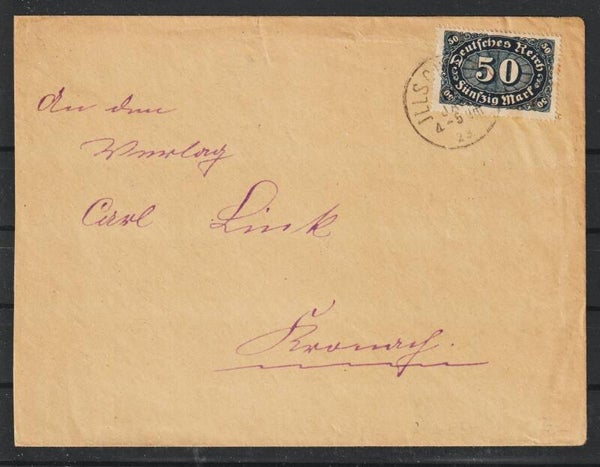 50 50
Deutsches Reich
50
Fünfzig Mark
50 50
ILLSC
4-5
23
An den
Verlag
Carl Link
Kronach.